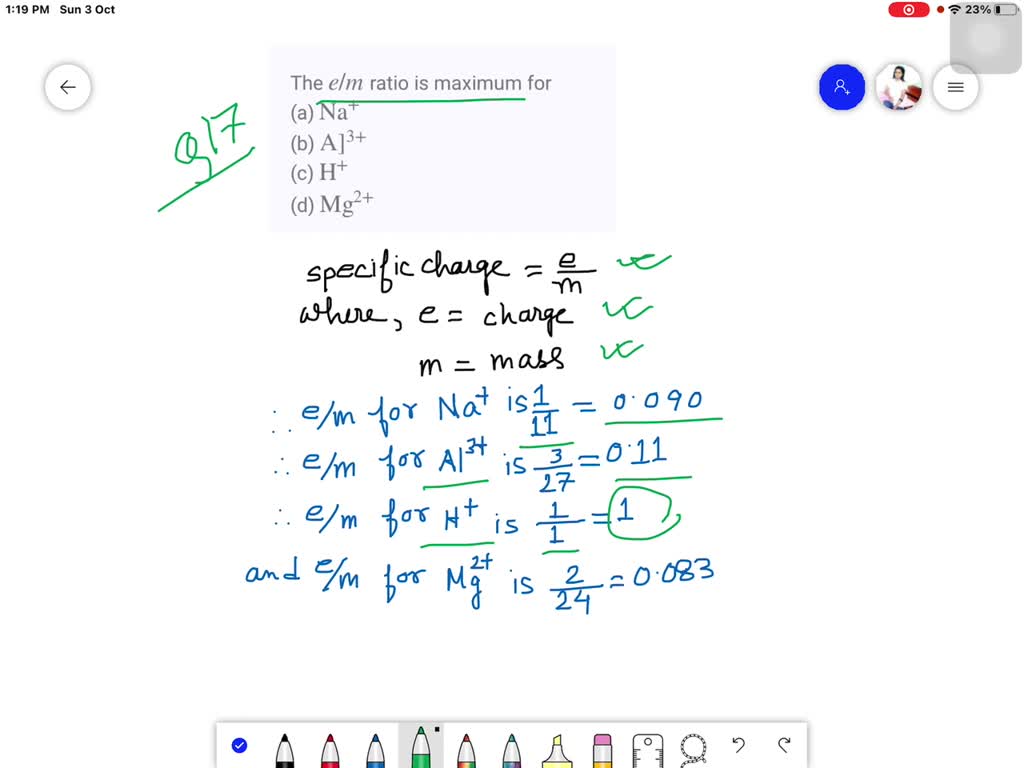 1:19 PM Sun 3 Oct
23%
The e/m ratio is maximum for
(a) Na⁺
(b) A]³⁺
(c) H⁺
(d) Mg²⁺
Q17
specific charge = e/m
where, e = charge
m = mass
∴ e/m for Na⁺ is 1/11 = 0.090
∴ e/m for Al³⁺ is 3/27 = 0.11
∴ e/m for H⁺ is 1/1 = 1
and e/m for Mg²⁺ is 2/24 = 0.083